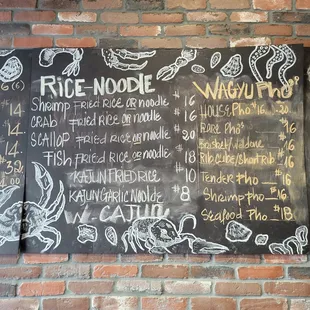 RICE-NOODLE
Shrimp Fried Rice or Noodle $16
CRAB Fried Rice or Noodle $16
Scallop Fried Rice or Noodle $20
Fish Fried Rice or Noodle $18
KATJUN Fried Rice $10
KATJUN Garlic Noodle $8
W. CAJUN
WAGYU Pho
House Pho $16 20
Rare Pho $16
Brisket/Wadave $16
Rib Cube/Short rib $16
Tender Pho $16
Shrimp Pho $16
Seafood Pho $18
14
14
14
32